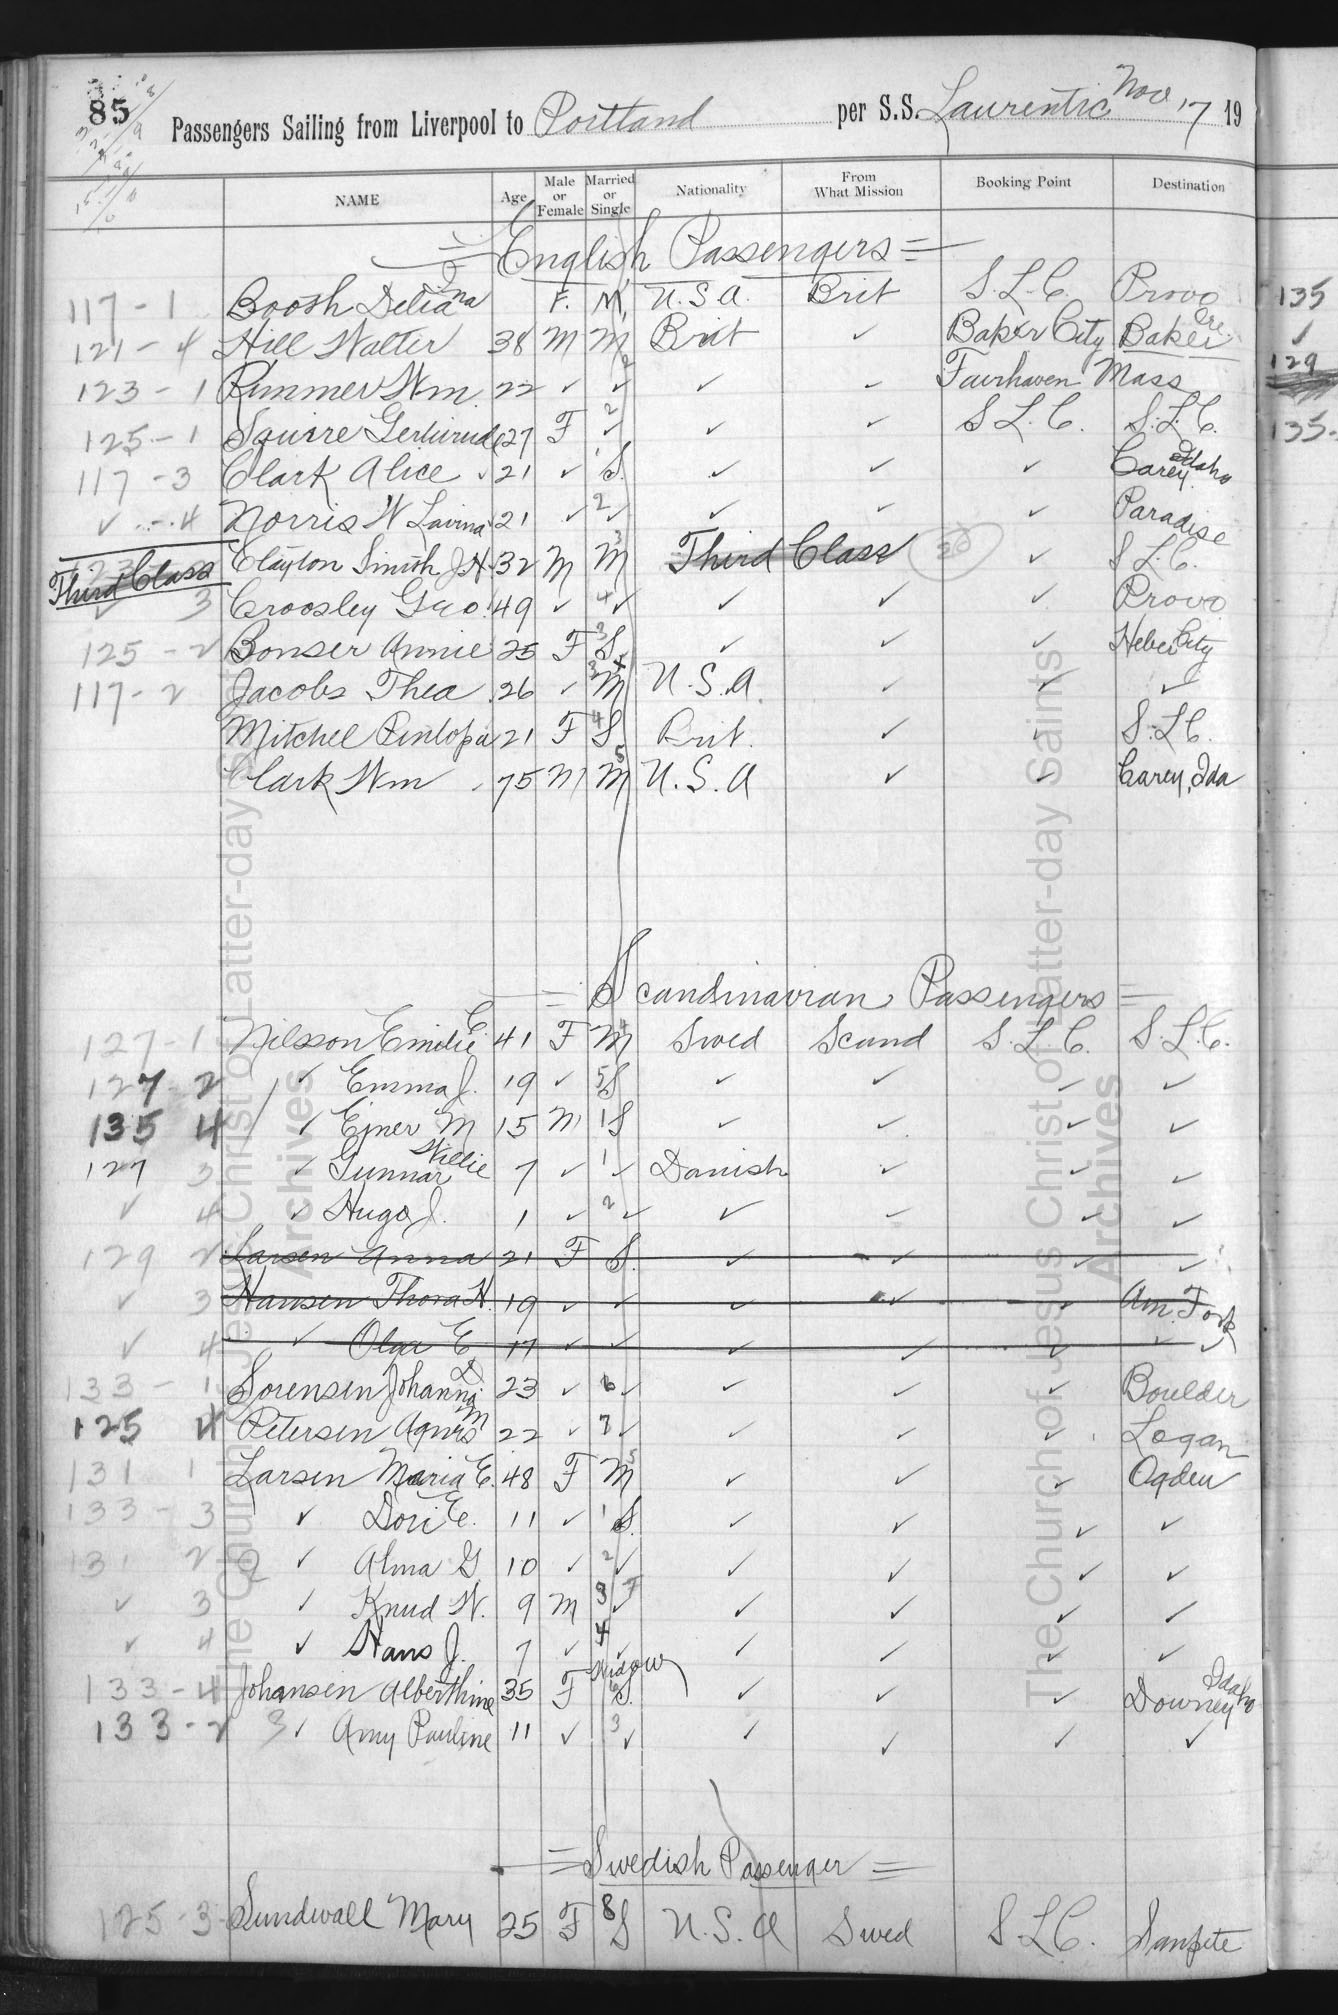 85
Passengers Sailing from Liverpool to Portland per S.S. Laurentic Nov 17 19
NAME Age Male or Female Married or Single Nationality From What Mission Booking Point Destination
= English Passengers =
117 - 1 Boosh Delia F. M U.S.A. Brit S.L.C. Provo 135
121 - 4 Hill Walter 38 M M Brit ✓ Baker City Baker Ore. ✓
123 - 1 Rimmer Wm 22 ✓ 2 ✓ ✓ ✓ Fairhaven Mass 129
125 - 1 Squire Gertrude 27 F 2 ✓ ✓ ✓ S.L.C. S.L.C. 135
117 - 3 Clark Alice 21 ✓ 1 S. ✓ ✓ ✓ Carey Idaho
✓ - 4 Norris W Lavina 21 ✓ 2 ✓ ✓ ✓ ✓ Paradise
Third Class Clayton Smith J.H. 32 M M 3 Third Class ✓ S.L.C.
✓ 3 Croosley Geo. 49 ✓ 4 ✓ ✓ ✓ ✓ Provo
125 - 2 Bonser Annie 25 F 3 S ✓ ✓ ✓ Heber City
117 - 2 Jacobs Thea 26 ✓ 3 M U.S.A. ✓ ✓ ✓
Mitchel Penlopa 21 F 4 S Brit. ✓ ✓ S.L.C.
Clark Wm 75 M M 5 U.S.A ✓ ✓ Carey, Ida
= Scandinavian Passengers =
127 - 1 Nilsson Emilie C. 41 F M 4 Swed Scand S.L.C. S.L.C.
127 - 2 ✓ Emma J. 19 ✓ 5 S ✓ ✓ ✓ ✓
135 4 ✓ Ejner M 15 M 1 S ✓ ✓ ✓ ✓
127 3 ✓ Gunnar Willie 7 ✓ 1 ✓ Danish ✓ ✓ ✓
✓ 4 ✓ Hugo J. 1 ✓ 2 ✓ ✓ ✓ ✓ ✓
129 2 Larsen Anna 21 F S. ✓ ✓ ✓ ✓
✓ 3 Hansen Thora H. 19 ✓ ✓ ✓ ✓ ✓ Am. Fork
✓ 4 ✓ Olga E 17 ✓ ✓ ✓ ✓ ✓ ✓
133 - 1 Sorensen Johanna D 23 ✓ 6 ✓ ✓ ✓ ✓ Boulder
125 4 Petersen Agnes M 22 ✓ 7 ✓ ✓ ✓ ✓ Logan
131 1 Larsen Maria E. 48 F M 5 ✓ ✓ ✓ Ogden
133 - 3 ✓ Dori E. 11 ✓ 1 S. ✓ ✓ ✓ ✓
131 2 ✓ Alma G 10 ✓ 2 ✓ ✓ ✓ ✓ ✓
✓ 3 ✓ Knud W. 9 M 3 ✓ ✓ ✓ ✓ ✓
✓ 4 ✓ Hans J. 7 ✓ 4 ✓ ✓ ✓ ✓ ✓
133 - 4 Johansen Alberthine 35 F Widow S. ✓ ✓ ✓ Downey Idaho
133 - 2 3 ✓ Amy Pauline 11 ✓ 3 ✓ ✓ ✓ ✓ ✓
= Swedish Passenger =
125 - 3 Sundwall Mary 25 F 8 S U.S.A Swed S.L.C. Sanpete
The Church of Jesus Christ of Latter-day Saints
Archives
The Church of Jesus Christ of Latter-day Saints
Archives